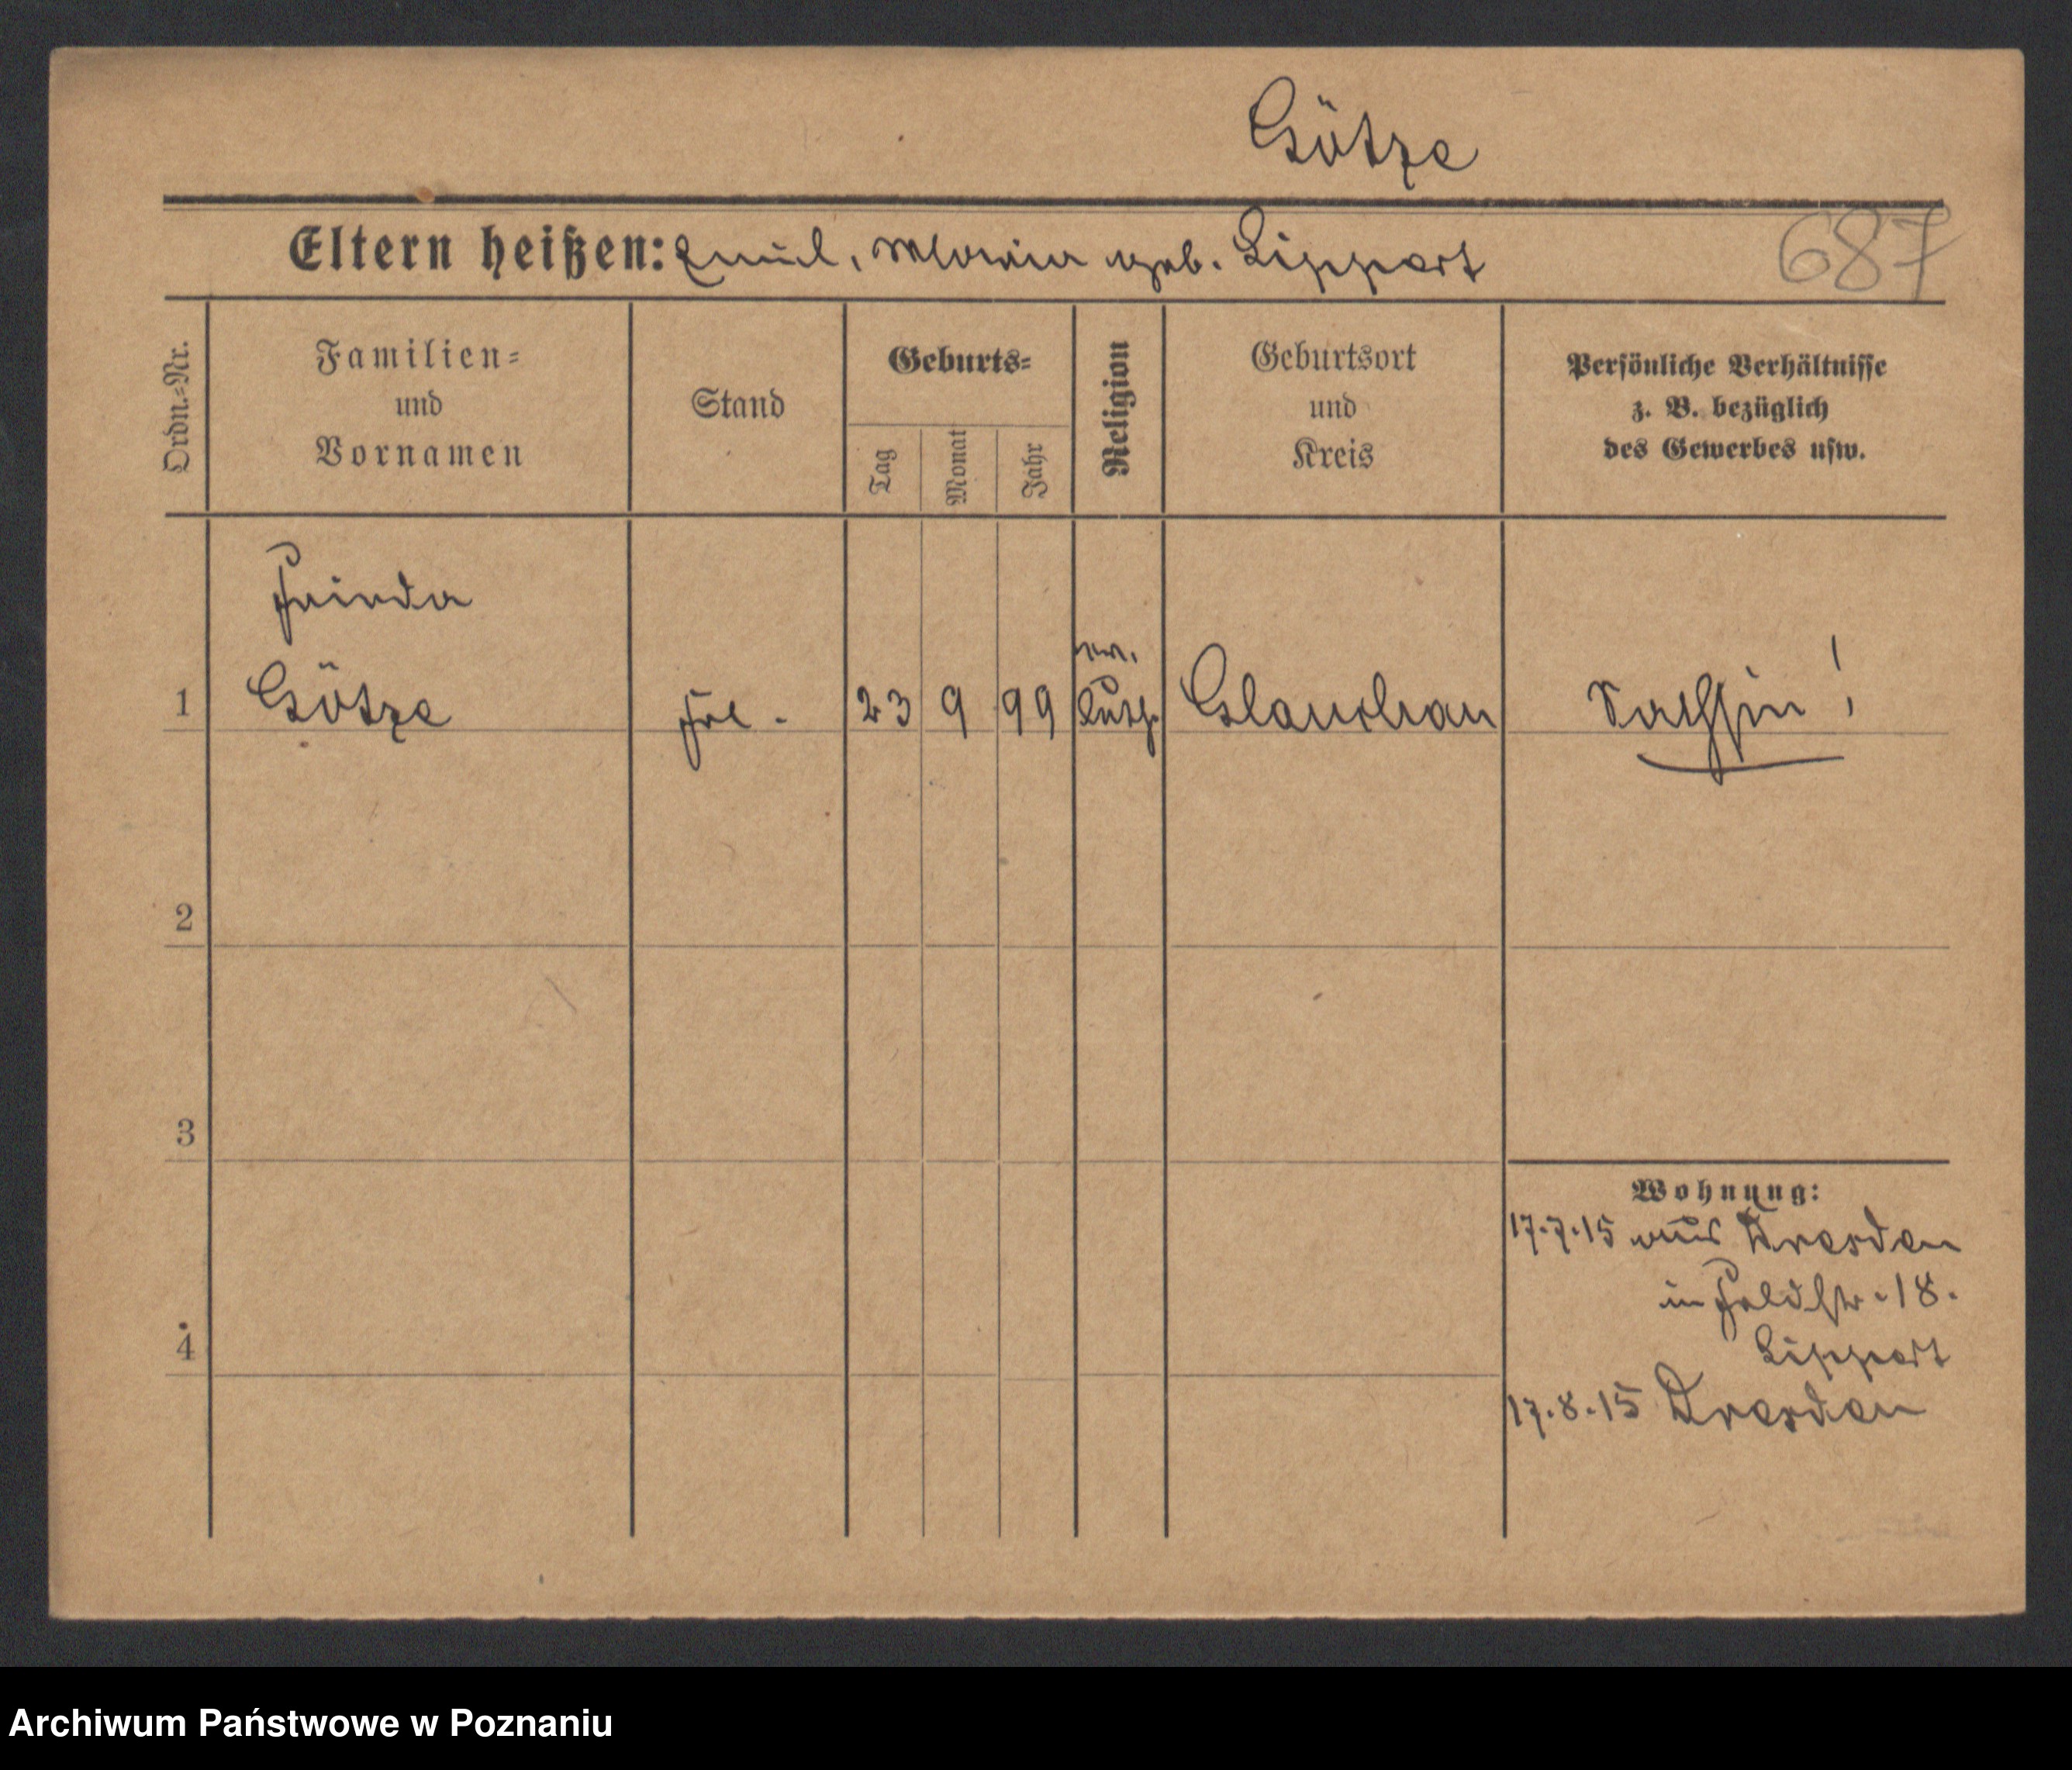 Götze
Eltern heißen: Emil, Maria geb. Lippert
687
Ordn.=Nr.
Familien=
und
Vornamen
Stand
Geburts=
Tag
Monat
Jahr
Religion
Geburtsort
und
Kreis
Persönliche Verhältnisse
z. B. bezüglich
des Gewerbes usw.
Frieda
ev.
1 Götze Frl. 23 9 99 luth. Glauchau Sachsen!
2
3
4
Wohnung:
17.7.15 aus Dresden
in Feldstr. 18.
Lippert
17.8.15 Dresden
Archiwum Państwowe w Poznaniu